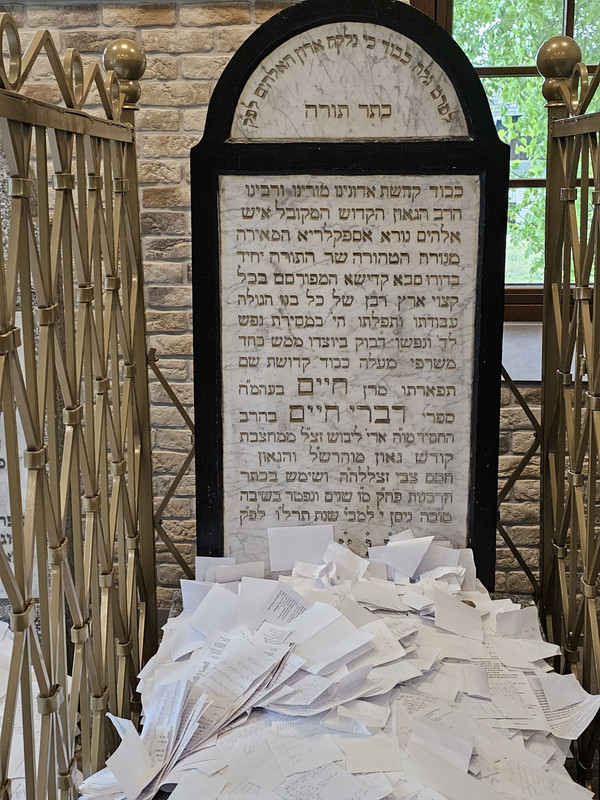 לפרט גלה כבוד כי נלקח ארון האלהים לפק
כתר תורה
כבוד קדושת אדונינו מורינו ורבינו
הרב הגאון הקדוש המקובל איש
אלהים נורא אספקלריא המאירה
מנורת הטהורה שר התורה יחיד
בדורו סבא קדישא המפורסם בכל
קצוי ארץ רבן של כל בני הגולה
עבודתו ותפלתו הי׳ במסירת נפש
לד׳ ונפשו דבוק ביוצרו ממש כחד
משרפי מעלה כבוד קדושת שם
תפארתו מרן חיים בעהמ״ח
ספרי דברי חיים בהרב
החסיד מו״ה ארי׳ ליבוש זצ״ל ממחצבת
קודש גאון מוהרש״ל והגאון
חכם צבי זצללה״ה ושימש בכתר
הרבנות פהק מ״ו שנים ונפטר בשיבה
טובה ניסן י׳ למב״י שנת תרל״ו לפ״ק